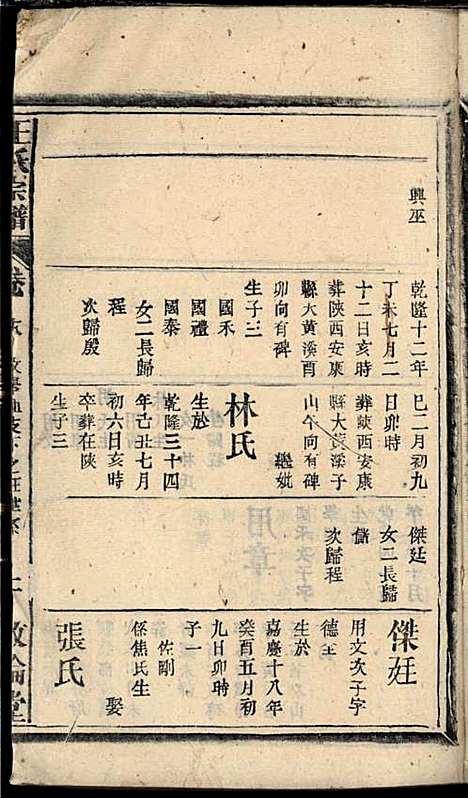 王氏宗譜
卷
敦倫堂
興巫
乾隆十二年
丁未七月二
十二日亥時
葬陝西安康
縣大黃溪酉
卯向有碑
生子三
國禾
國禮
國泰
女二長歸
程
次歸殷
巳二月初九
日卯時
葬陝西安康
縣大黃溪子
山午向有碑
繼妣
林氏
生於
乾隆三十四
年己丑七月
初六日亥時
卒葬在陝
生子三
傑廷
女二長歸
儲
次歸程
傑廷
用文次子字
德玉
生於
嘉慶十八年
癸酉五月初
九日卯時
子一
佐剛
係焦氏生
娶
張氏